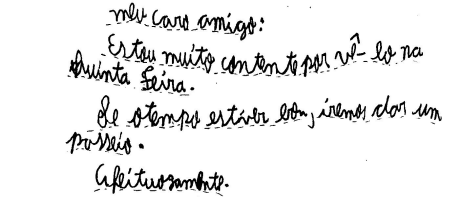 meu caro amigo:
Estou muito contente por vê-lo na
Quinta Feira.
Se o tempo estiver bom, iremos dar um
passeio.
Afeituosamente.